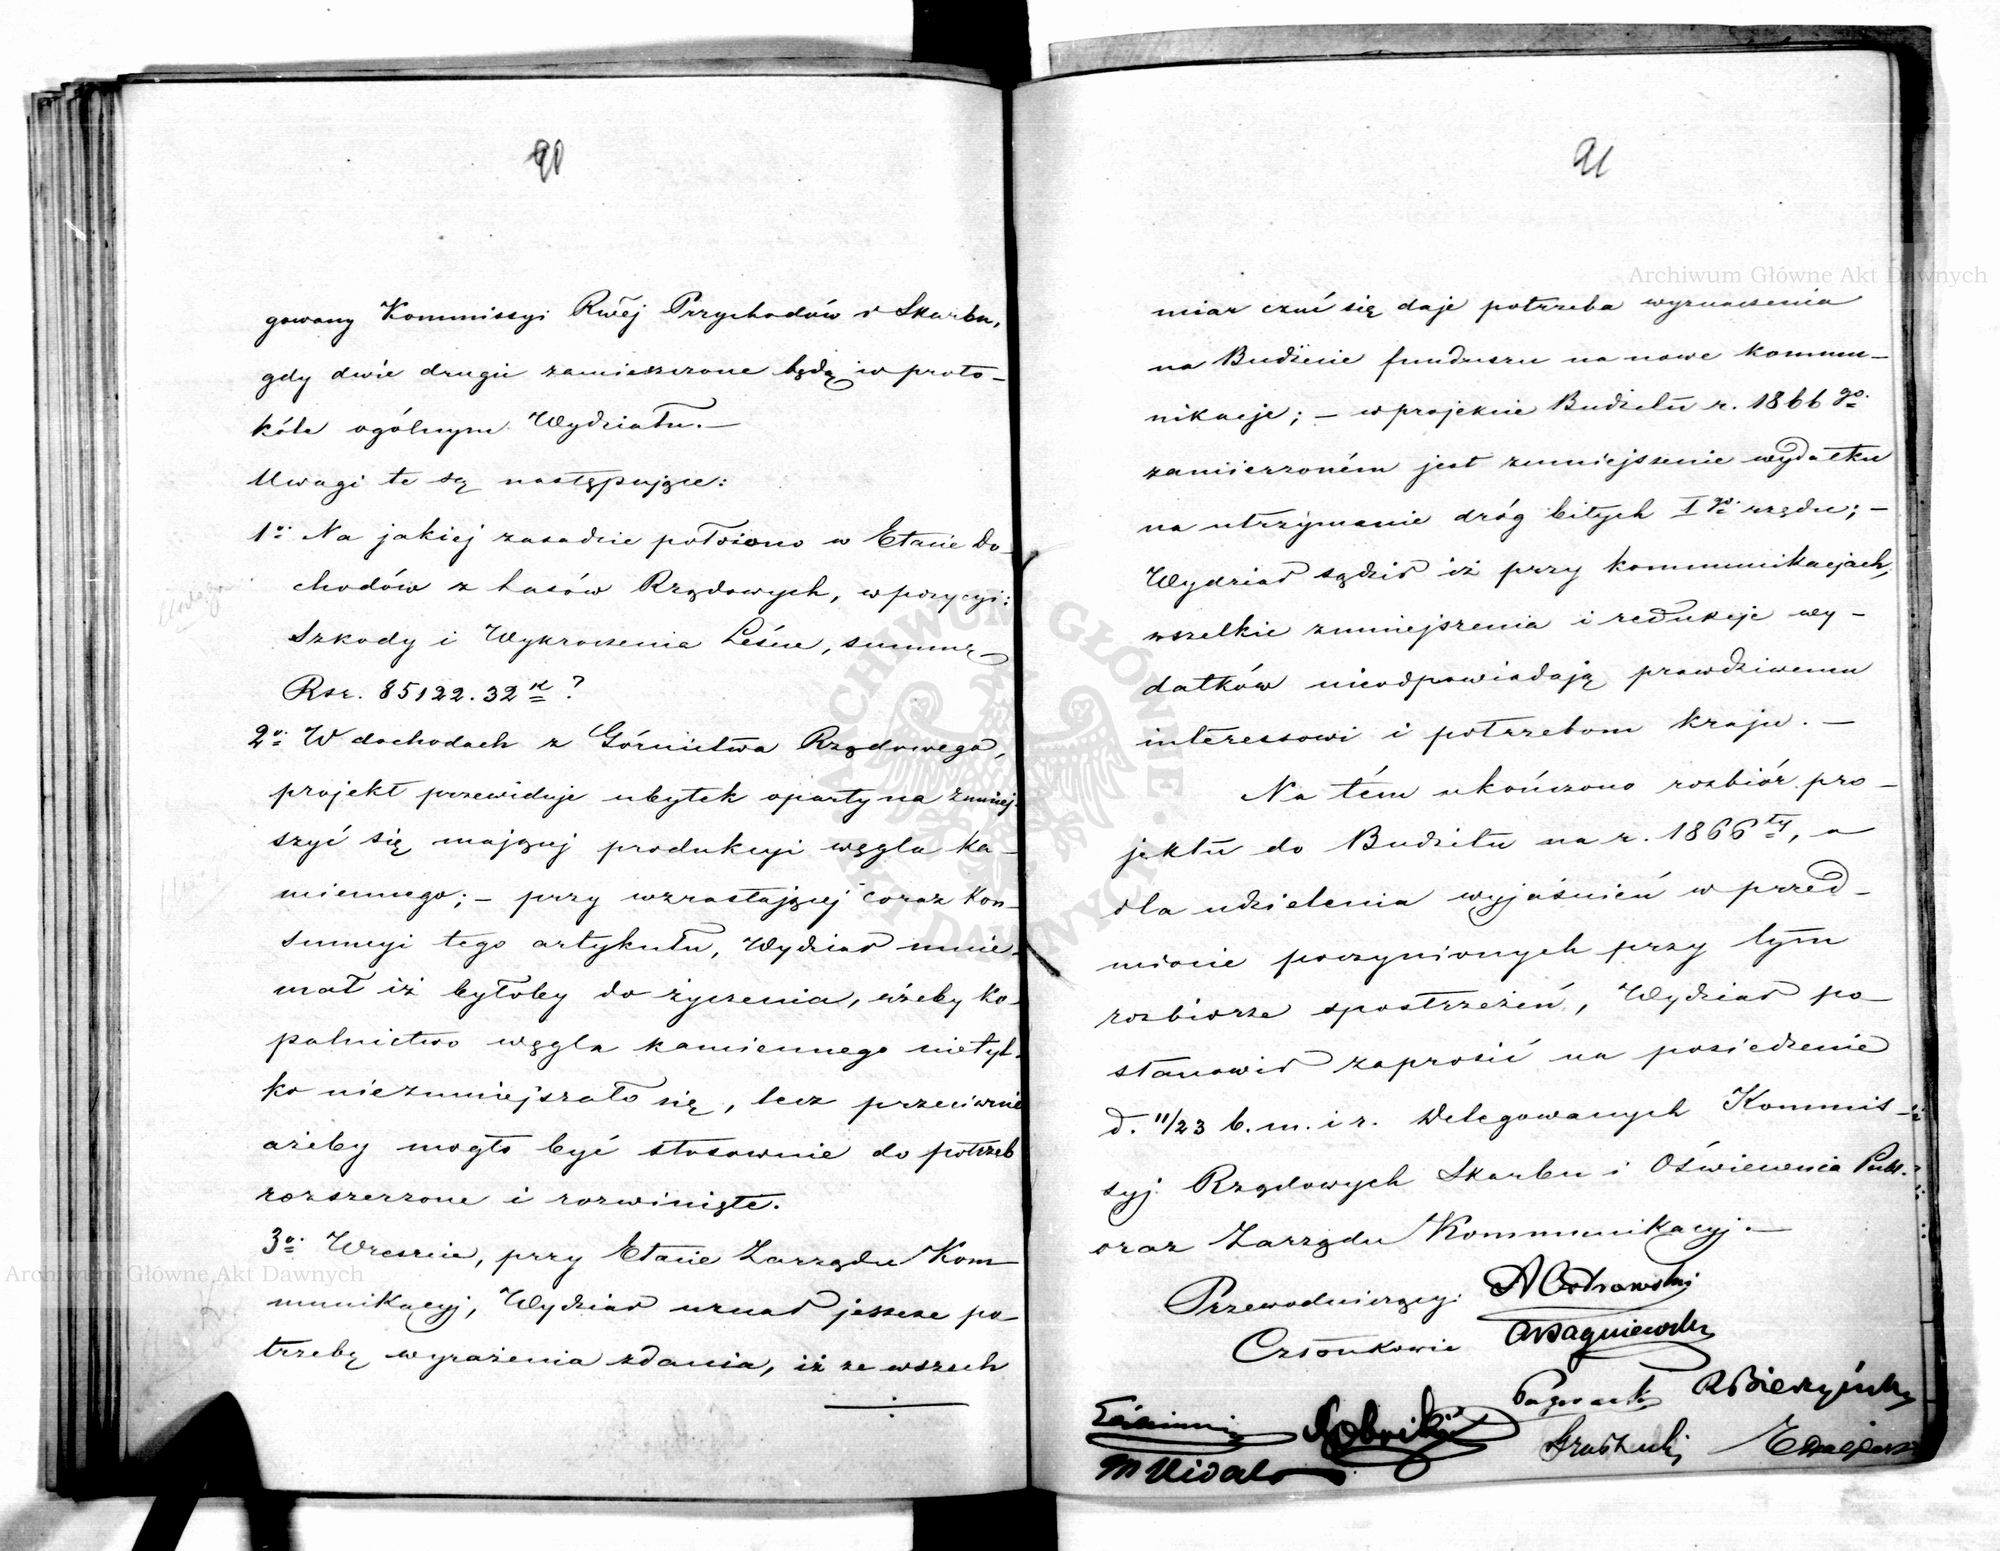 90
gowany Kommissyi Rwéj Przychodów i Skarbu,
gdy dwie drugie zamieszczone będą w proto-
kóle ogólnym Wydziału. —
Uwagi te są następujące:
1o. Na jakiej zasadzie położono w Etacie Do-
chodów z Lasów Rządowych, w pozycyi:
Szkody i Wykroczenia Leśne, summę
Rsr. 85122.32 k ?
2o. W dochodach z Górnictwa Rządowego,
projekt przewiduje ubytek oparty na zmniej-
szyć się mającej produkcyi węgla ka-
miennego; — przy wzrastającej coraz kon-
sumcyi tego artykułu, Wydział mnie-
mał iż byłoby do życzenia, ażeby ko-
palnictwo węgla kamiennego nietyl-
ko niezmniejszało się, lecz przeciwnie
ażeby mogło być stosownie do potrzeb
rozszerzone i rozwinięte.
3o. Wreszcie, przy Etacie Zarządu Kom-
munikacyj, Wydział uznał jeszcze po-
trzebę wyrażenia zdania, iż ze wszech
91
miar czuć się daje potrzeba wyznaczenia
na Budżecie funduszu na nowe kommu-
nikacje; — w projekcie Budżetu r. 1866 go.
zamierzoném jest zmniejszenie wydatku
na utrzymanie dróg bitych I go. rzędu; —
Wydział sądził iż przy kommunikacjach,
wszelkie zmniejszenia i redukcje wy-
datków nieodpowiadają prawdziwemu
interessowi i potrzebom kraju. —
Na tém ukończono rozbiór pro-
jektu do Budżetu na r. 1866 ty, a
dla udzielenia wyjaśnień w przed-
miocie poczynionych przy tym
rozbiorze spostrzeżeń, Wydział po-
stanowił zaprosić na posiedzenie
d. 11/23 b. m. i r. Delegowanych Kommis-
syj Rządowych Skarbu i Oświecenia Publ.
oraz Zarządu Kommunikacyj. —
Przewodniczący: AOstrowski
Członkowie
MVidal
Archiwum Główne Akt Dawnych
Archiwum Główne Akt Dawnych
ARCHIWUM GŁÓWNE AKT DAWNYCH